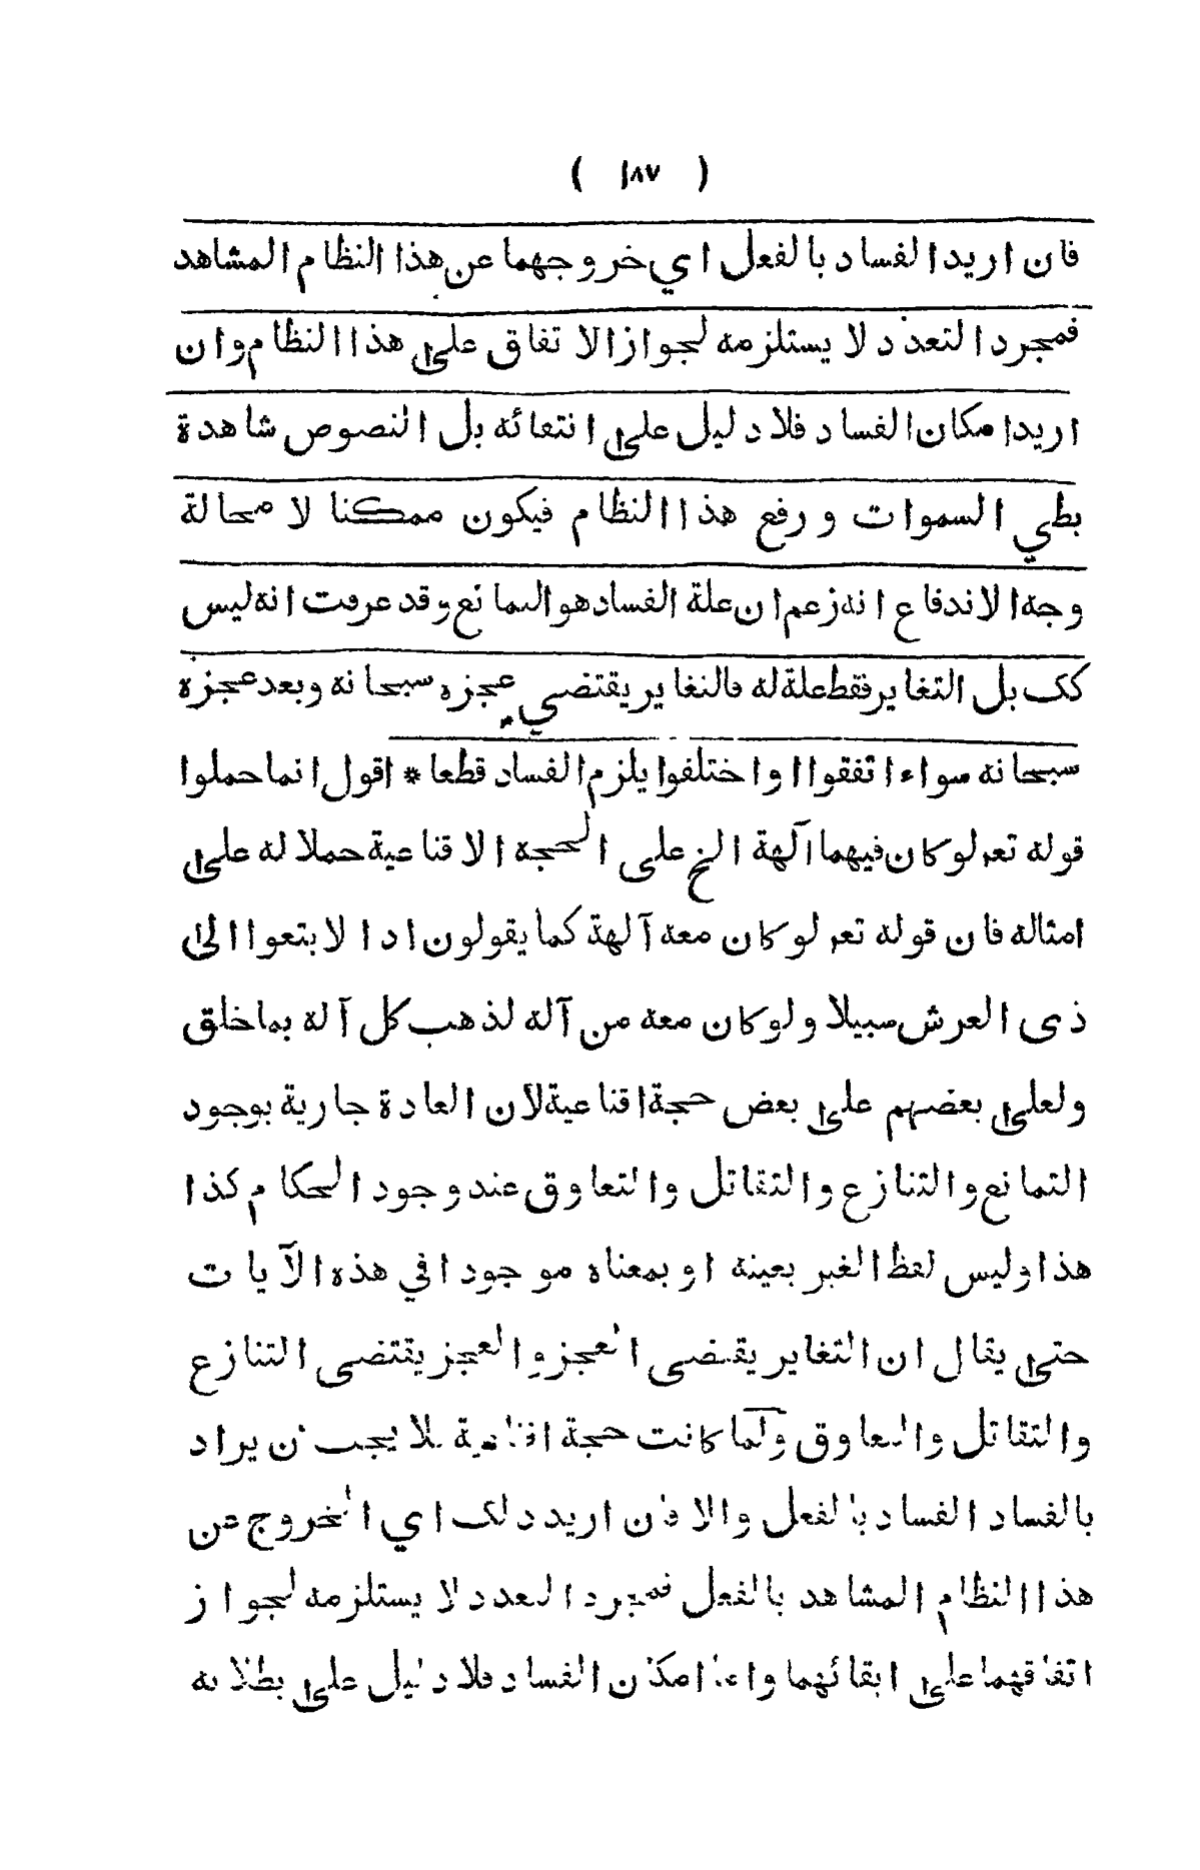 ( ١٨٧ )
فان اريد الفساد بالفعل اي خروجهما عن هذا النظام المشاهد
فمجرد التعدد لا يستلزمه لجواز الاتفاق على هذا النظام وان
اريد امكان الفساد فلا دليل على انتفائه بل النصوص شاهدة
بطي السموات و رفع هذا النظام فيكون ممكنا لا محالة
وجه الاندفاع انه زعم ان علة الفساد هو التمانع وقد عرفت انه ليس
كك بل التغاير فقط علة له فالتغاير يقتضي عجزه سبحانه وبعد عجزه
سبحانه سواء اتفقوا او اختلفوا يلزم الفساد قطعا * اقول انما حملوا
قوله تعم لو كان فيهما آلهة الخ على الحجة الاقناعية حملا له على
امثاله فان قوله تعم لو كان معه آلهة كما يقولون اذا لابتغوا الى
ذى العرش سبيلا ولو كان معه من آلة لذهب كل آلة بما خلق
ولعلى بعضهم على بعض حجة اقناعية لان العادة جارية بوجود
التمانع والتنازع والتقاتل والتعاوق عند وجود الحكام كذا
هذا وليس لفظ الغير بعينه او بمعناه موجودا في هذه الآيات
حتى يقال ان التغاير يقتضى العجز والعجز يقتضى التنازع
والتقاتل والتعاوق ولما كانت حجة اقناعية لا يجب ان يراد
بالفساد الفساد بالفعل والا فان اريد ذلك اي الخروج عن
هذا النظام المشاهد بالفعل فمجرد التعدد لا يستلزمه لجواز
اتفاقهما على ابقائهما واما امكان الفساد فلا دليل على بطلانه